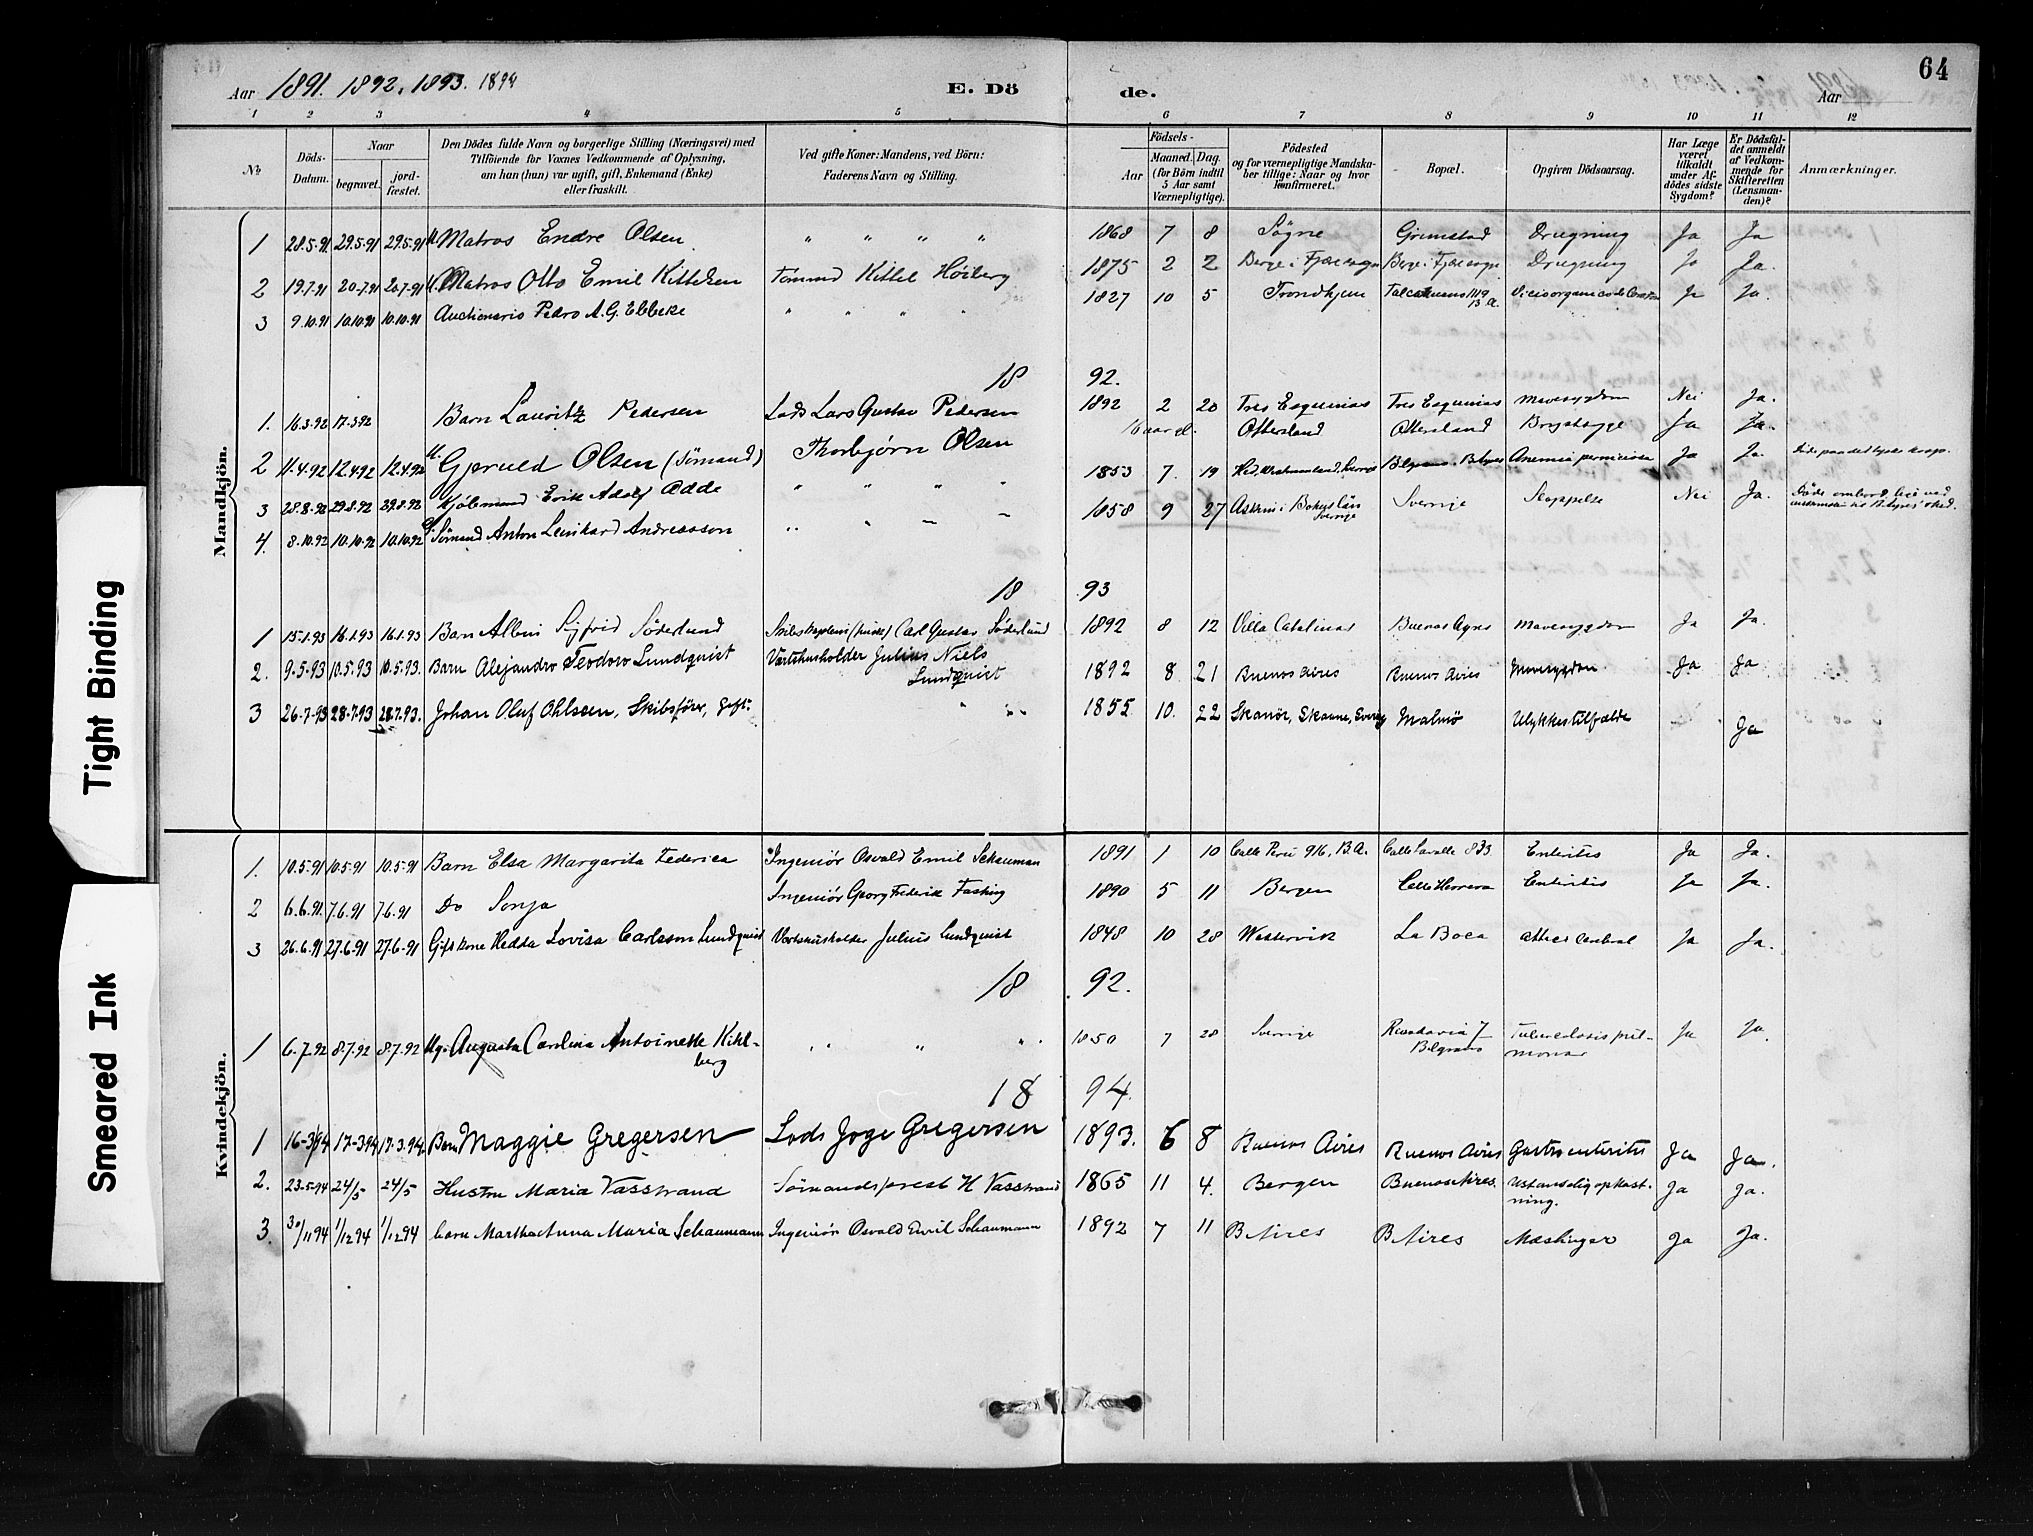 64
Aar 1891. 1892. 1893. 1894
E. Dö de.
Aar
1 2 3 4 5 6 7 8 9 10 11 12
№ Döds-Datum. Naar begravet. jord-fæstet. Den Dödes fulde Navn og borgerlige Stilling (Næringsvei) med Tilföiende for Voxnes Vedkommende af Oplysning, om han (hun) var ugift, gift, Enkemand (Enke) eller fraskilt. Ved gifte Koner: Mandens, ved Börn: Faderens Navn og Stilling. Födsels- Aar Maaned. Dag. (for Börn indtil 5 Aar samt Værnepligtige). Födested og for værnepligtige Mandska-ber tillige: Naar og hvor konfirmeret. Bopæl. Opgiven Dödsaarsag. Har Læge været tilkaldt under Af-dödes sidste Sygdom? Er Dödsfal-det anmeldt af Vedkom-mende for Skifteretten (Lensman-den)? Anmærkninger.
Mandkjön.
1 28.5.91 29.5.91 29.5.91 U. Matros Endre Olsen " " " " 1868 7 8 Søgne Grimstad Drugning Ja Ja
2 19.7.91 20.7.91 20.7.91 U. Matros Otto Emil Kittelsen Tømmd Kittel Heiberg 1875 2 2 Berge i Fjære sogn Berge i Fjære sogn Drugning Ja Ja.
3 9.10.91 10.10.91 10.10.91 Auctionario Pedro A. G. Ebbeke " " " " 1827 10 5 Trondhjem Ja Ja.
18 92.
1. 16.3.92 17.3.92 Barn Lauritz Pedersen Lods Lars Gustav Pedersen 1892 2 20 Tres Esquinas Tres Esquinas Mavesygdom Nei Ja.
2 11.4.92 12.4.92 12.4.92 U. Gjeruld Olsen (Sömand) Thorbjørn Olsen 16 aar gl. Ottersland Ottersland Brystsyge Ja Ja.
3 28.8.92 29.8.92 29.8.92 Erik Adolf Adde " " " " 1853 7. 19 Belgrano. B. Ayres Anemia perniciosa Ja Ja.
4. 8.10.92 10.10.92 10.10.92 G. Sömand Anton Leonhard Andreasson " " " " 1858 9 27 Askum i Bohus Län Sverige Sverrige Nei Ja.
18 93
1 15.1.93 16.1.93 16.1.93 Barn Albin Sigfrid Söderlund Skibskaptein (finsk) Carl Gustav Söderlund 1892 8 12 Villa Catalinas Buenos Ayres Mavesygdom Ja Ja.
2. 9.5.93 10.5.93 10.5.93. Barn Alejandro Teodoro Lundquist Værtshusholder Julius Niels Lundquist 1892 8 21 Buenos Aires Buenos Aires Mavesygdom. Ja Ja
3 26.7.93 28.7.93 28.7.93. Johan Oluf Ohlsson, Skibsförer, gift. " " 1855 10. 22 Skanör, Skaane, Sverig Malmö Ulykkestilfælde Ja
Kvindekjön.
1. 10.5.91 10.5.91 10.5.91 Barn Elsa Margarita Federica Ingeniör Osvald Emil Schauman 1891 1 10 Calle Perú 916, B.A. Calle Lavalle 833 Enteritis Ja Ja.
2 6.6.91. 7.6.91 7.6.91 Do Sonja Ingeniör Georg Frederik Fasting 1890 5 11 Bergen Calle Herrera Enteritis Ja Ja.
3 26.6.91 27.6.91 27.6.91 Gift Kone Hedda Lovisa Carlsson Lundquist Vertshusholder Julius Lundquist 1848 10 28 Westervik La Boca cerebral Ja Ja.
18 92.
1 6.7.92 8.7.92 8.7.92 Ug. Augusta Carolina Antoinette Kihl-berg " " " 1850 7 28 Sverrige Rivadavia 7 Belgrano Tuberculosis pul-monar Ja Ja.
18 94.
1 16-3/94 17-3.94 17.3.94 Barn Maggie Gregersen Lods Joge Gregersen 1893. 6 8 Buenos Aires Buenos Aires Gastroenteritis Ja Ja.
2. 23.5.94 24/5 24/5 Hustru Maria Vasstrand Sömandsprest H Vasstrand 1865 11 4. Bergen Buenos Aires. Ustanselig opkast-ning. Ja Ja.
3. 30/11 94 1/12 94 1/12 94 barn Martha Anna Maria Schaumann Ingeniör Osvald Emil Schaumann 1892 7 11 B Aires B Aires Mæslinger Ja Ja.
Tight Binding
Smeared Ink